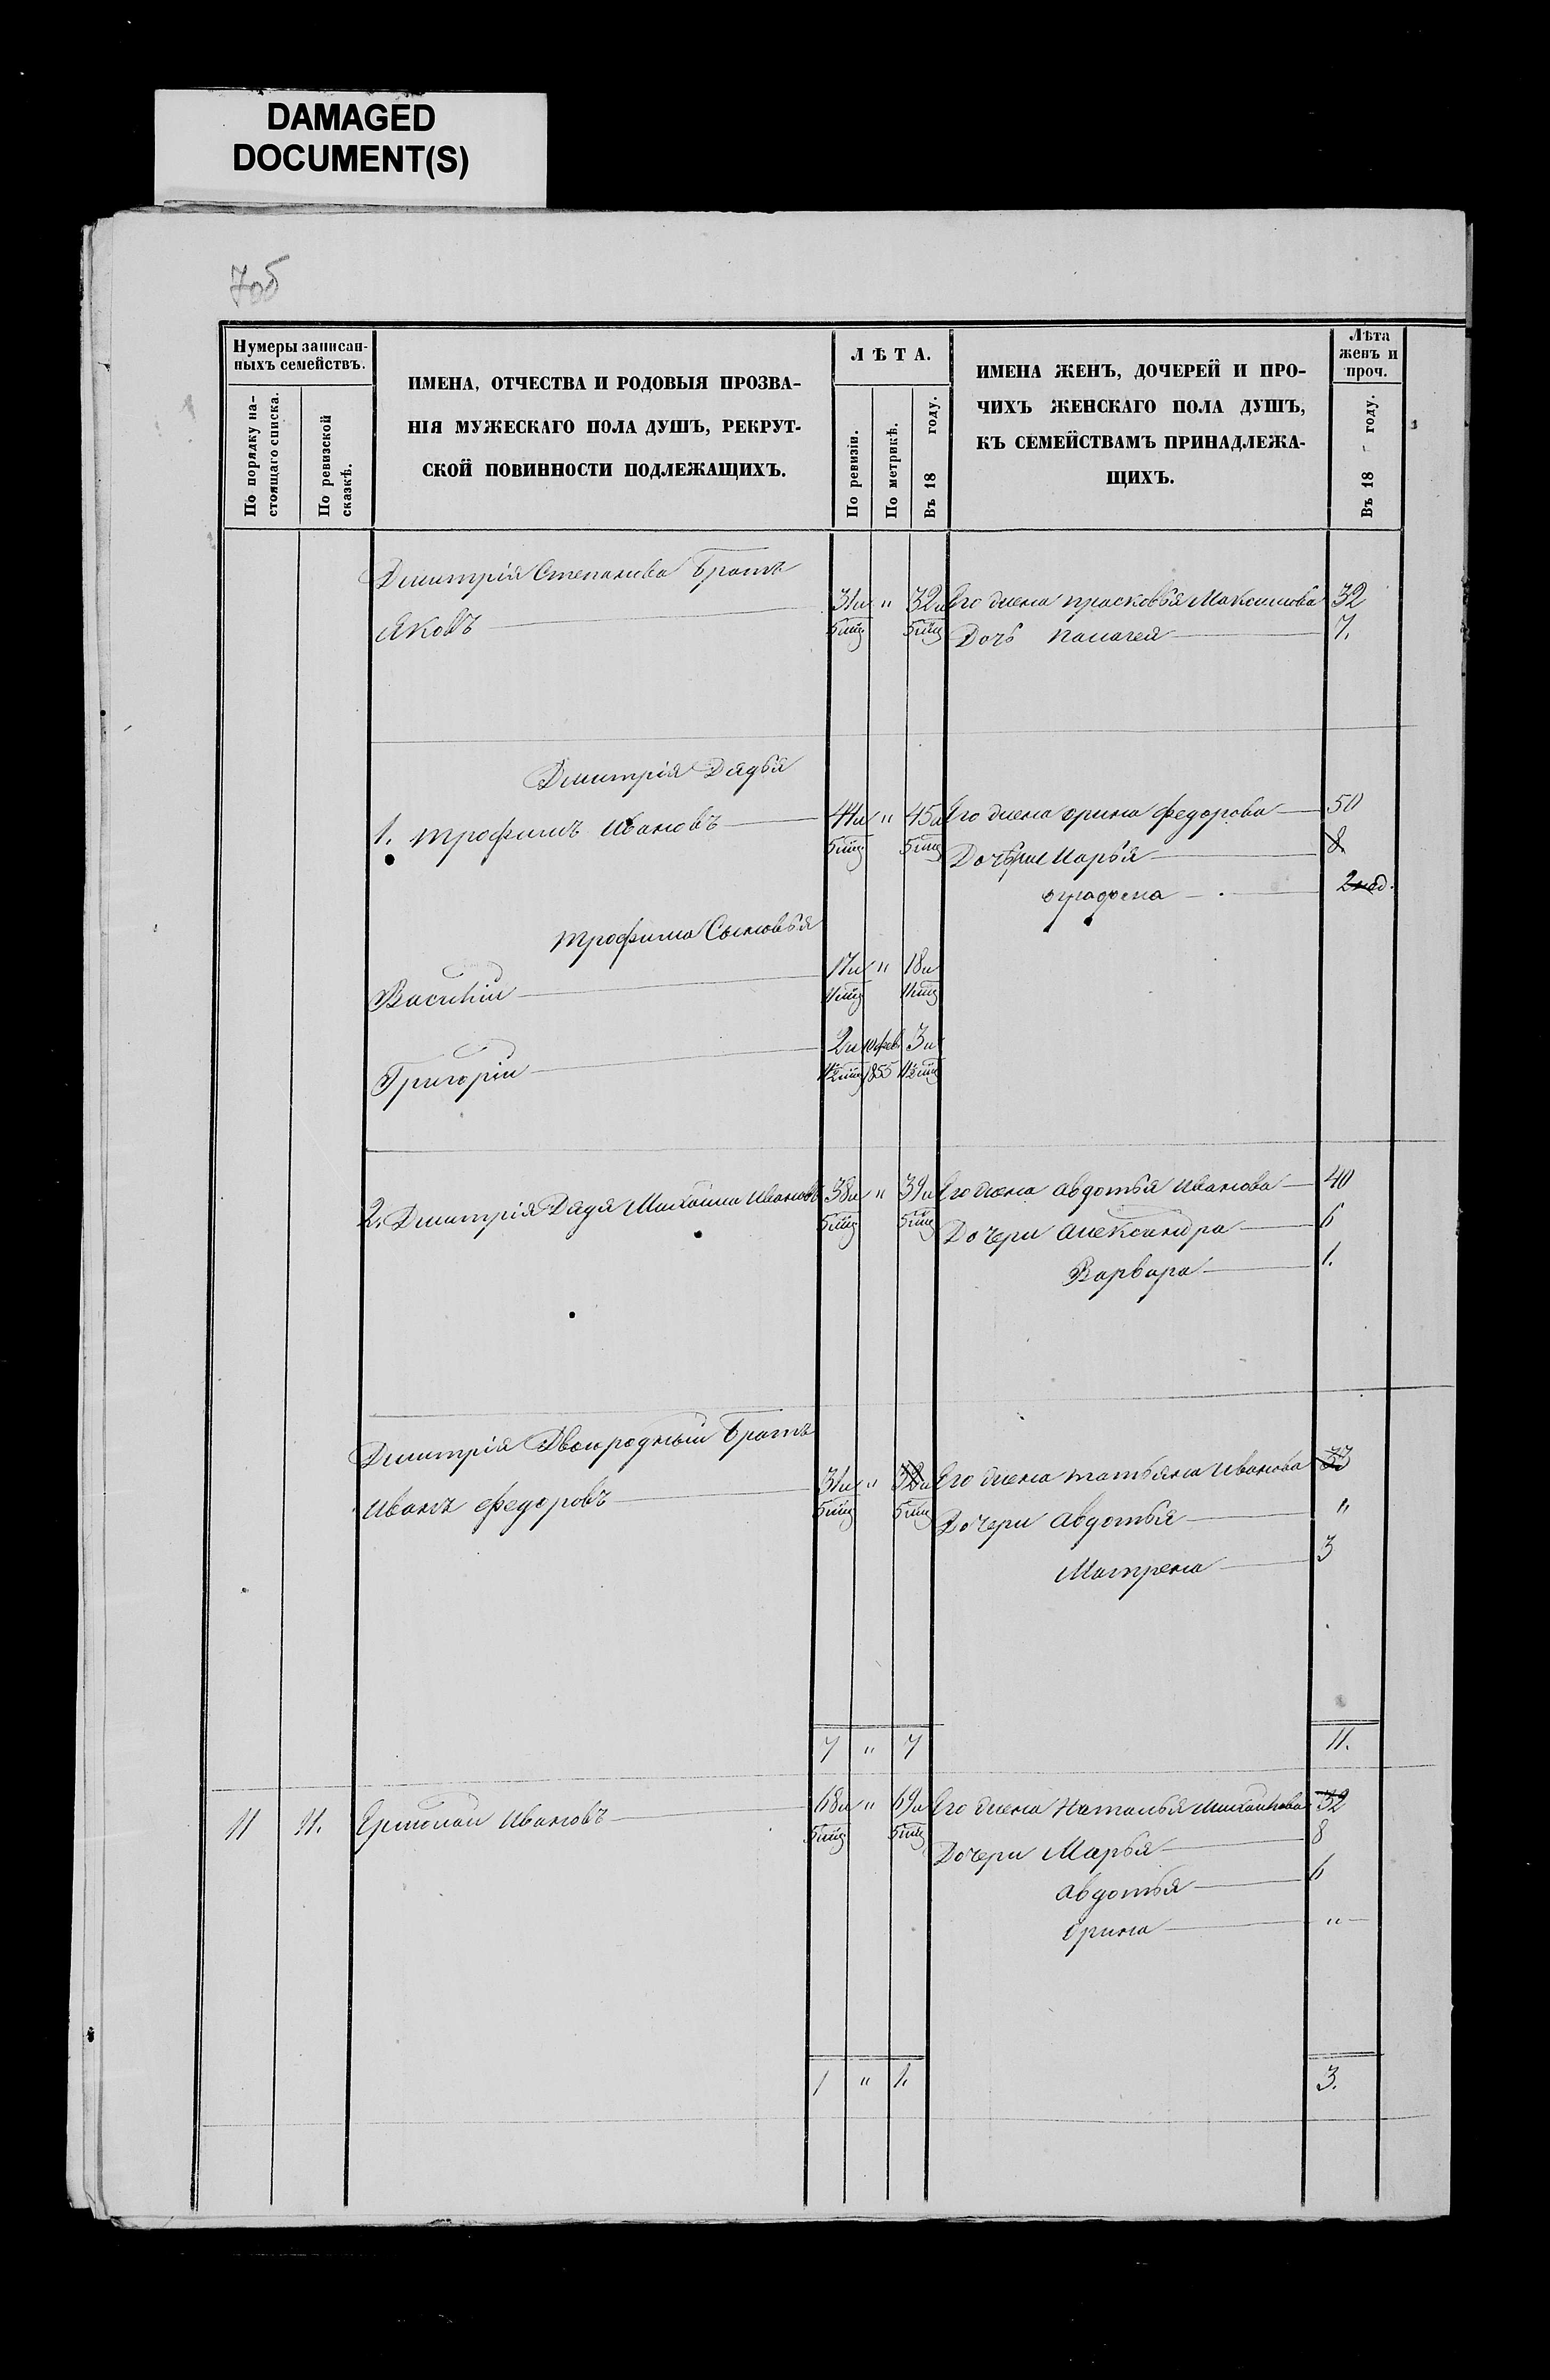 DAMAGED
DOCUMENT(S)
70б
Нумеры записан-
ныхъ семействъ.
По порядку на-
стоящаго списка.
По ревизской
сказкѣ.
ИМЕНА, ОТЧЕСТВА И РОДОВЫЯ ПРОЗВА-
НІЯ МУЖЕСКАГО ПОЛА ДУШЪ, РЕКРУТ-
СКОЙ ПОВИННОСТИ ПОДЛЕЖАЩИХЪ.
ЛѢТА.
По ревизіи.
По метрикѣ.
Въ 18 году.
ИМЕНА ЖЕНЪ, ДОЧЕРЕЙ И ПРО-
ЧИХЪ ЖЕНСКАГО ПОЛА ДУШЪ,
КЪ СЕМЕЙСТВАМЪ ПРИНАДЛЕЖА-
ЩИХЪ.
Лѣта
женъ и
проч.
Въ 18 году.
Дмитрія Степанова братъ
Яковъ 31 " 32 Его жена Прасковья Максимова 32
Дочь Палагея 7.
Дмитрія Дядья
1. Трофимъ Ивановъ 44 " 45 Его жена Орина Федорова 50
Дочери Марья 8
2 нед.
Трофима Сыновья
Василій 17 " 18
Григорій 2 10 фев. 3
1855
2. Дмитрія Дядя Михайла Ивановъ 38 " 39 Его жена Авдотья Иванова 40
Дочери Александра 6
Варвара 1.
Дмитрія Двоюродный братъ
Иванъ Федоровъ 31 " 32 Его жена Татьяна Иванова 33
Дочери Авдотья "
Матрена 3
7 " 7 11.
11 11. Ермолай Ивановъ 68 " 69 Его жена Наталья Михайлова 52
Дочери Марья 8
Авдотья 6
Орина "
1 " 1. 3.